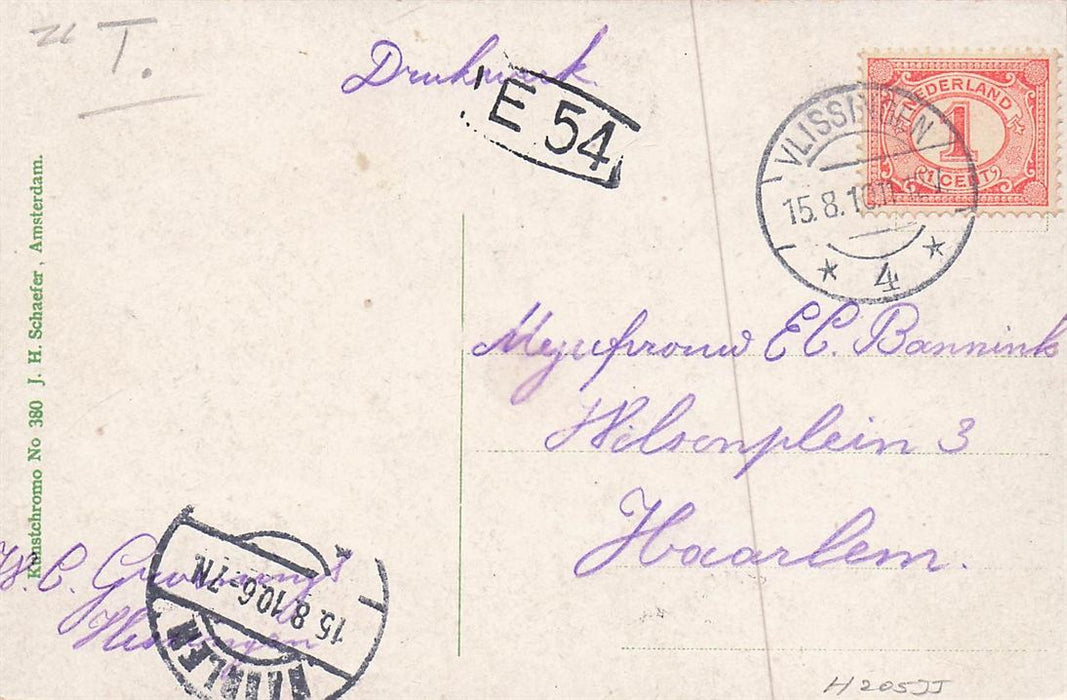 T.
Drukwerk
E 54
NEDERLAND
1
1 CENT
VLISSINGEN
15.8.10.11
4
Kunstchromo No 380 J. H. Schaefer, Amsterdam.
Mejufrouw E C. Bannink
Wilsonplein 3
Haarlem.
W. C.
Vlissingen
15.8.10.6-7N.
HAARLEM
H205JJ